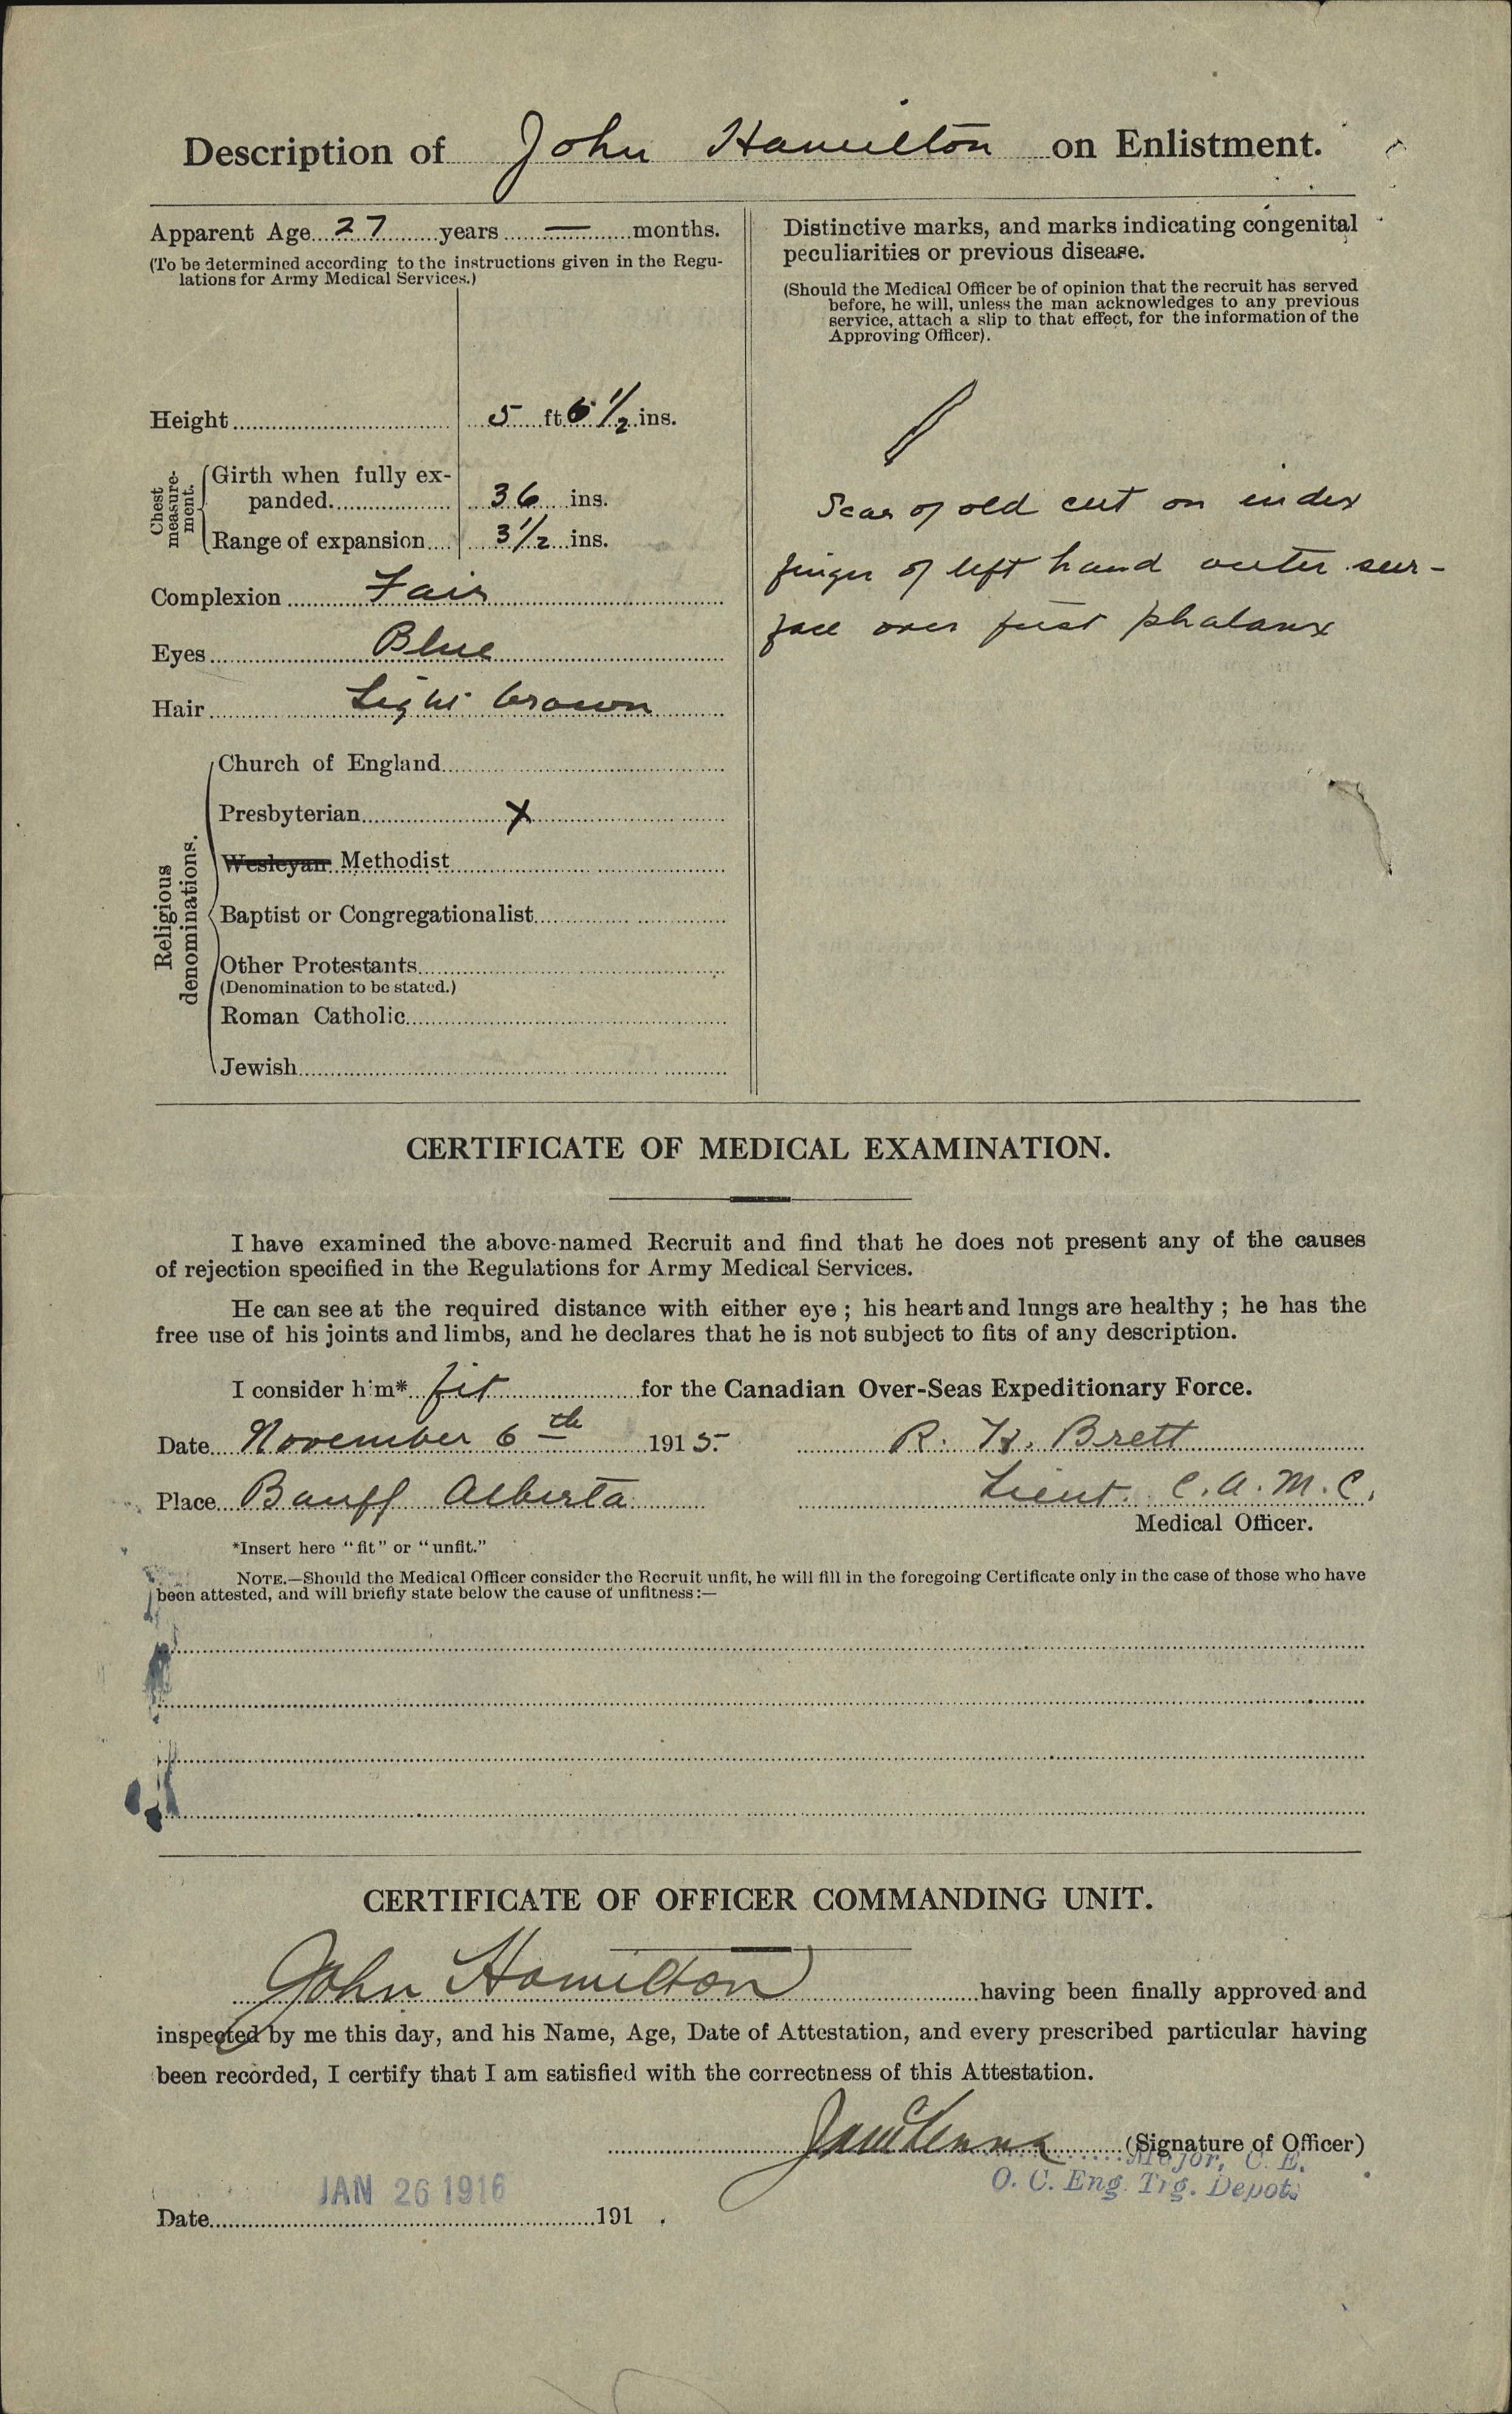 Description of John Hamilton on Enlistment.
Apparent Age 27 years — months.
(To be determined according to the instructions given in the Regu-
lations for Army Medical Services.)
Height 5 ft 6 1/2 ins.
Chest measure-ment.
Girth when fully ex-
panded 36 ins.
Range of expansion 3 1/2 ins.
Complexion Fair
Eyes Blue
Hair Light brown
Religious denominations.
Church of England
Presbyterian X
Wesleyan Methodist
Baptist or Congregationalist
Other Protestants
(Denomination to be stated.)
Roman Catholic
Jewish
Distinctive marks, and marks indicating congenital
peculiarities or previous disease.
(Should the Medical Officer be of opinion that the recruit has served
before, he will, unless the man acknowledges to any previous
service, attach a slip to that effect, for the information of the
Approving Officer).
Scar of old cut on index
finger of left hand outer sur-
face over first phalanx
CERTIFICATE OF MEDICAL EXAMINATION.
I have examined the above-named Recruit and find that he does not present any of the causes
of rejection specified in the Regulations for Army Medical Services.
He can see at the required distance with either eye ; his heart and lungs are healthy ; he has the
free use of his joints and limbs, and he declares that he is not subject to fits of any description.
I consider him* fit for the Canadian Over-Seas Expeditionary Force.
Date November 6th 1915. R. H. Brett
Place Banff Alberta Lieut. C.A.M.C.
Medical Officer.
*Insert here "fit" or "unfit."
NOTE.—Should the Medical Officer consider the Recruit unfit, he will fill in the foregoing Certificate only in the case of those who have
been attested, and will briefly state below the cause of unfitness:—
CERTIFICATE OF OFFICER COMMANDING UNIT.
John Hamilton having been finally approved and
inspected by me this day, and his Name, Age, Date of Attestation, and every prescribed particular having
been recorded, I certify that I am satisfied with the correctness of this Attestation.
(Signature of Officer)
Major, C. E.
O. C. Eng. Trg. Depot.
JAN 26 1916
Date 191 .